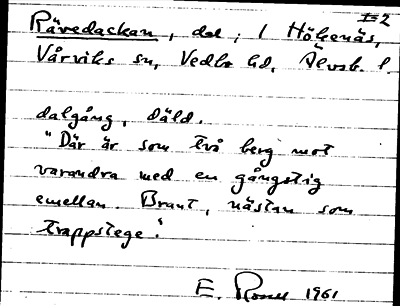 I=2
Rävedackan, dal, i Hökenäs,
Vårviks sn, Vedbo hd, Älvsb. l.
dalgång, däld.
"Där är som två berg mot
varandra med en gångstig
emellan. Brant, nästan som
trappstege."
E. 1961